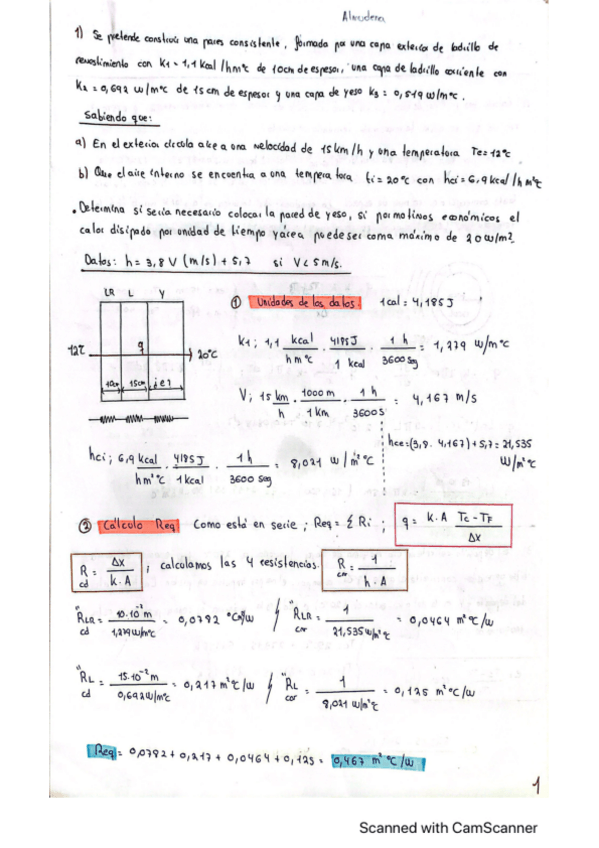 Almudena
1) Se pretende construir una pared consistente, formada por una capa exterior de ladrillo de
revestimiento con K1 = 1,1 Kcal/hmºC de 10cm de espesor, una capa de ladrillo corriente con
K2 = 0,692 w/mºC de 15 cm de espesor y una capa de yeso K3 = 0,519 w/mºC.
Sabiendo que:
a) En el exterior circula aire a una velocidad de 15 km/h y una temperatura Te=12ºC
b) Que el aire interno se encuentra a una temperatura ti = 20ºC con hci = 6,9 kcal/h m²ºC
• Determina si sería necesario colocar la pared de yeso, si por motivos económicos el
calor disipado por unidad de tiempo y área puede ser como máximo de 20w/m².
Datos: h = 3,8 V (m/s) + 5,7 si V < 5 m/s.
LR L Y
① Unidades de los datos: 1 cal = 4,185 J
12ºC q 20ºC
10cm 15cm ¿e?
K1; 1,1 kcal/hmºC · 4185J/1 kcal · 1 h/3600 seg = 1,279 w/mºC
V; 15 km/h · 1000 m/1 km · 1 h/3600 s = 4,167 m/s
hci; 6,9 kcal/hm²ºC · 4185J/1kcal · 1 h/3600 seg = 8,021 w/m²ºC
hce = (3,8 · 4,167) + 5,7 = 21,535 w/m²ºC
② Cálculo Req Como está en serie; Req = Σ Ri; q = K·A (Tc - TF)/Δx
R cd = Δx/k·A ; calculamos las 4 resistencias. R cov = 1/h·A
"RLR cd = 10·10⁻² m/1,279w/mºC = 0,0782 ºCm²/w "RLR cov = 1/21,535w/m²ºC = 0,0464 m²ºC/w
"RL cd = 15·10⁻² m/0,692w/mºC = 0,217 m²ºC/w "RL cov = 1/8,021 w/m²ºC = 0,125 m²ºC/w
Req = 0,0782 + 0,217 + 0,0464 + 0,125 = 0,467 m²ºC/w
1
Scanned with CamScanner